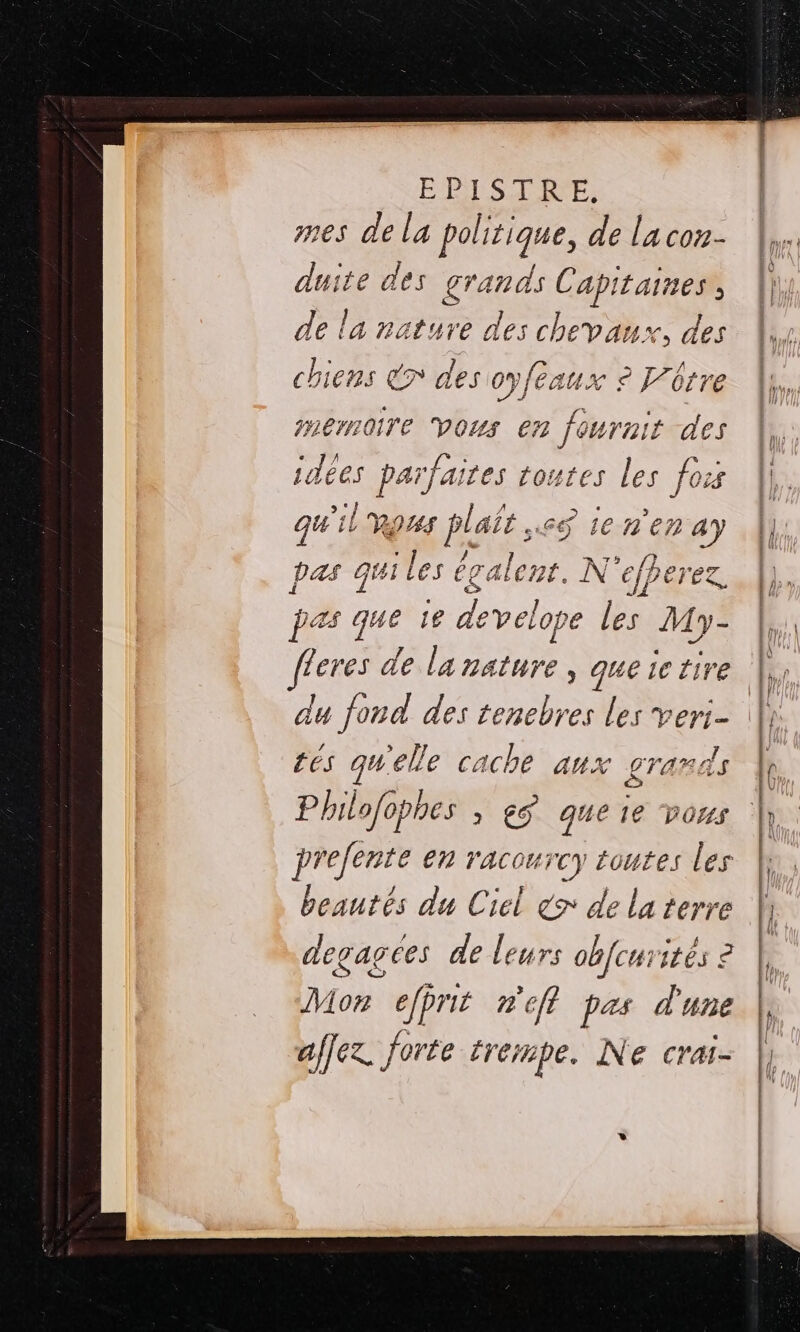 EPISTRE.
mes de la politique, de la con-
duite des grands Capitaines,
de la nature des chevaux, des
chiens & des oyſeaux ? Vôtre
memoire vous en fournit des
idées parfaites toutes les fois
qu'il vous plaît, & ie n'en ay
pas qui les égalent. N'eſperez
pas que ie develope les My-
ſteres de la nature, que ie tire
du fond des tenebres les veri-
tés qu'elle cache aux grands
Philoſophes, & que ie vous
preſente en racourcy toutes les
beautés du Ciel & de la terre
degagées de leurs obſcurités ?
Mon eſprit n'eſt pas d'une
aſſez forte trempe. Ne crai-